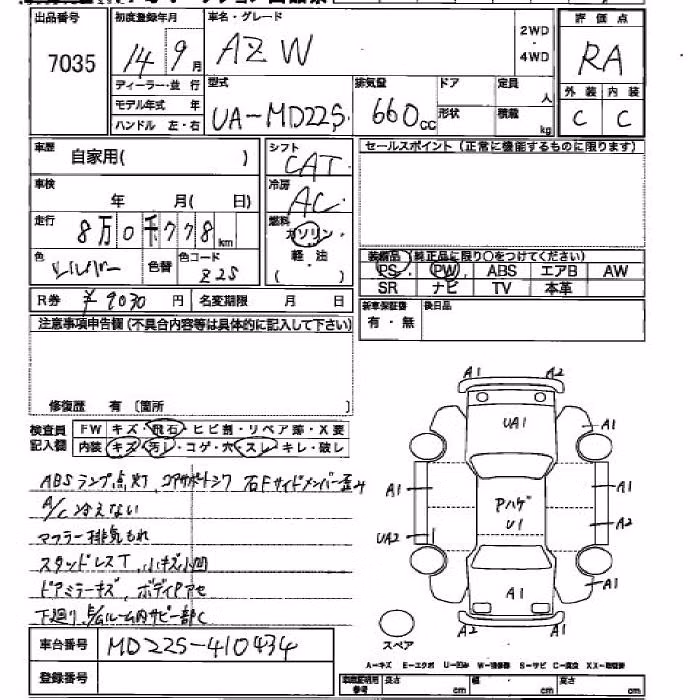 出品番号 初度登録年月 車名・グレード 2WD・4WD 評価点
7035 14年9月 AZW RA
ディーラー・並行 型式 排気量 ドア 定員 人 外装 内装
モデル年式 年 UA-MD22S 660cc 形状 積載 kg C C
ハンドル 左・右
車歴 自家用( ) シフト CAT セールスポイント(正常に機能するものに限ります)
車検 年 月( 日) 冷房 AC
走行 8万0千778km 燃料 ガソリン・軽・油 ( )
色 シルバー 色替 色コード Z2S
装備品 純正品に限り○をつけてください)
PS PW ABS エアB AW
SR ナビ TV 本革
R券 ¥9030円 名変期限 月 日
新車保証書 有・無 後日品
注意事項申告欄(不具合内容等は具体的に記入して下さい)
修復歴 有 〔箇所 〕
検査員記入欄 FW キズ・飛石・ヒビ割・リペア跡・X要
内装 キズ・汚レ・コゲ・穴・スレ・キレ・破レ
ABSランプ点灯、コアサポートシワ 右Fサイドメンバー歪み
A/C冷えない
マフラー排気もれ
スタッドレスT、小キズ小凹
ドアミラーキズ、ボディPアセ
下廻り、E/Gルーム内サビ一部C
A1 A2
UA1 A1
A1 Pハゲ U1 A1
UA2 A2
A1 A1
A2 A1
スペア
車台番号 MD22S-410434
登録番号
A-キズ E-エクボ U-凹み W-補修跡 S-サビ C-腐食 XX-取替跡
車庫証明用参考 長さ cm 幅 cm 高さ cm